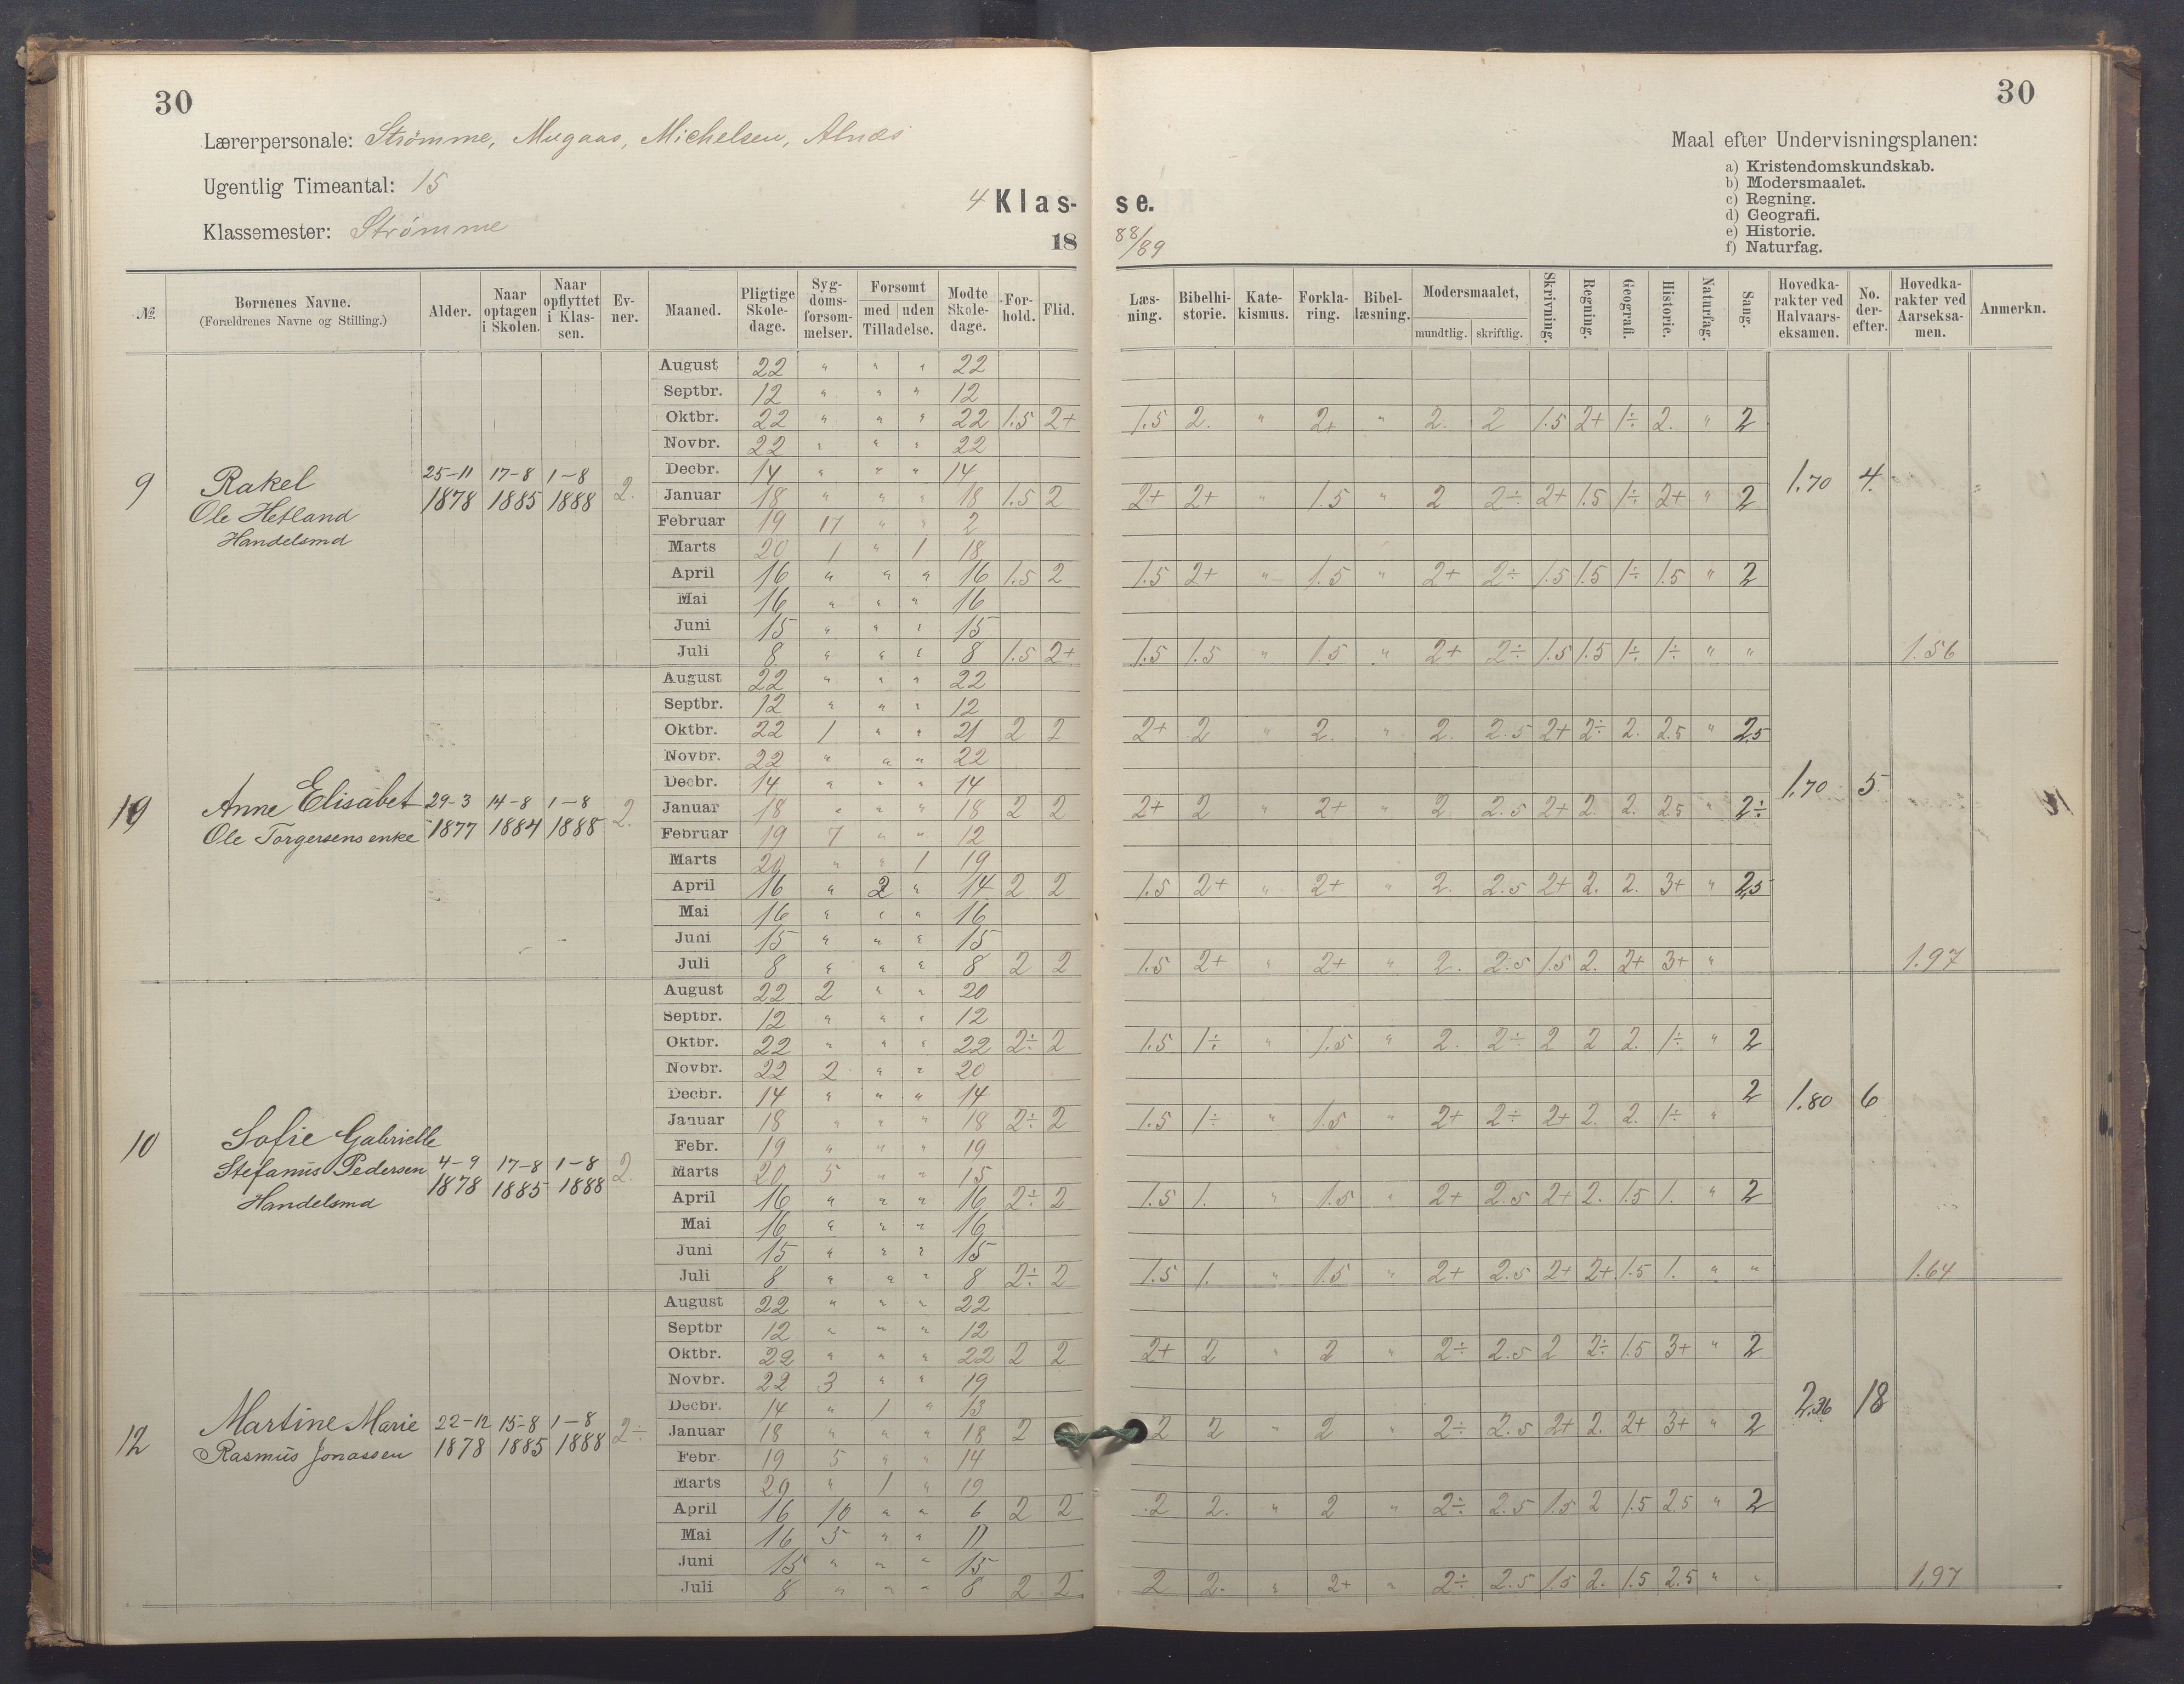 30
30
Lærerpersonale: Strømme, Mugaas, Michelsen, Alnæs
Ugentlig Timeantal: 15
Klassemester: Strømme
4 Klas- se.
18 88/89
Maal efter Undervisningsplanen:
a) Kristendomskundskab.
b) Modersmaalet.
c) Regning.
d) Geografi.
e) Historie.
f) Naturfag.
№ Børnenes Navne. (Forældrenes Navne og Stilling.) Alder. Naar optagen i Skolen. Naar opflyttet i Klassen. Evner. Maaned. Pligtige Skoledage. Sygdomsforsommelser. Forsømt med uden Tilladelse. Mødte Skoledage. Forhold. Flid. Læsning. Bibelhistorie. Katekismus. Forklaring. Bibellæsning. Modersmaalet, mundtlig. skriftlig. Skrivning. Regning. Geografi. Historie. Naturfag. Sang. Hovedkarakter ved Halvaarseksamen. No. derefter. Hovedkarakter ved Aarseksamen. Anmerkn.
9 Rakel
Ole Hetland
Handelsmd
25-11 1878 17-8 1885 1-8 1888 2.
August 22 " " " 22
Septbr. 12 " " " 12
Oktbr. 22 " " " 22 1.5 2+ 1.5 2. " 2+ " 2. 2 1.5 2+ 1÷ 2. " 2
Novbr. 22 " " " 22
Decbr. 14 " " " 14
1.70 4.
Januar 18 " " " 18 1.5 2 2+ 2+ " 1.5 " 2 2÷ 2+ 1.5 1÷ 2+ " 2
Februar 19 17 " " 2
Marts 20 1 " 1 18
April 16 " " " 16 1.5 2 1.5 2+ " 1.5 " 2+ 2÷ 1.5 1.5 1÷ 1.5 " 2
Mai 16 " " " 16
Juni 15 " " " 15
Juli 8 " " " 8 1.5 2+ 1.5 1.5 " 1.5 " 2+ 2÷ 1.5 1.5 1÷ 1÷ " " 1.56
Anne Elisabet
Ole Torgersens enke
29-3 1877 14-8 1884 1-8 1888 2.
August 22 " " " 22
Septbr. 12 " " " 12
Oktbr. 22 1 " " 21 2 2 2+ 2 " 2. " 2. 2.5 2+ 2÷ 2. 2.5 " 2.5
Novbr. 22 " " " 22
Decbr. 14 " " " 14
1.70 5
Januar 18 " " " 18 2 2 2+ 2 " 2+ " 2. 2.5 2+ 2. 2. 2.5 " 2÷
Februar 19 7 " " 12
Marts 20 " " 1 19
April 16 " 2 " 14 2 2 1.5 2+ " 2+ " 2. 2.5 2+ 2. 2. 3+ " 2.5
Mai 16 " " " 16
Juni 15 " " " 15
Juli 8 " " " 8 2 2 1.5 2+ " 2+ " 2. 2.5 1.5 2. 2+ 3+ " 1.97
10 Sofie Gabrielle
Stefanus Pedersen
Handelsmd
4-9 1878 17-8 1885 1-8 1888 2.
August 22 2 " " 20
Septbr. 12 " " " 12
Oktbr. 22 " " " 22 2÷ 2 1.5 1÷ " 1.5 " 2. 2÷ 2 2 2. 1÷ " 2
Novbr. 22 2 " " 20
Decbr. 14 " " " 14 2
1.80 6
Januar 18 " " " 18 2÷ 2 1.5 1÷ " 1.5 " 2+ 2÷ 2+ 2. 2. 1÷ "
Febr. 19 " " " 19
Marts 20 5 " " 15
April 16 " " " 16 2÷ 2 1.5 1. " 1.5 " 2+ 2.5 2+ 2. 1.5 1. " 2
Mai 16 " " " 16
Juni 15 " " " 15
Juli 8 " " " 8 2÷ 2 1.5 1. " 1.5 " 2+ 2.5 2+ 2+ 1.5 1. " " 1.64
12 Martine Marie
Rasmus Jonassen
22-12 1878 15-8 1885 1-8 1888 2÷
August 22 " " " 22
Septbr 12 " " " 12
Oktbr. 22 " " " 22 2 2 2+ 2 " 2 " 2÷ 2.5 2 2÷ 1.5 3+ " 2
Novbr. 22 3 " " 19
Decbr. 14 " 1 " 13
2.36 18
Januar 18 " " " 18 2 2 2 " 2 " 2÷ 2.5 2+ 2. 2+ 3+ " 2
Febr 19 5 " " 14
Marts 20 " 1 " 19
April 16 10 " " 6 2 2 2 2. " 2 " 2÷ 2.5 1.5 2 1.5 2.5 " 2
Mai 16 5 " " 11
Juni 15 " " " 15
Juli 8 " " " 8 2 2 2 2. " 2+ " 2÷ 2.5 1.5 2. 1.5 2.5 " " 1.97